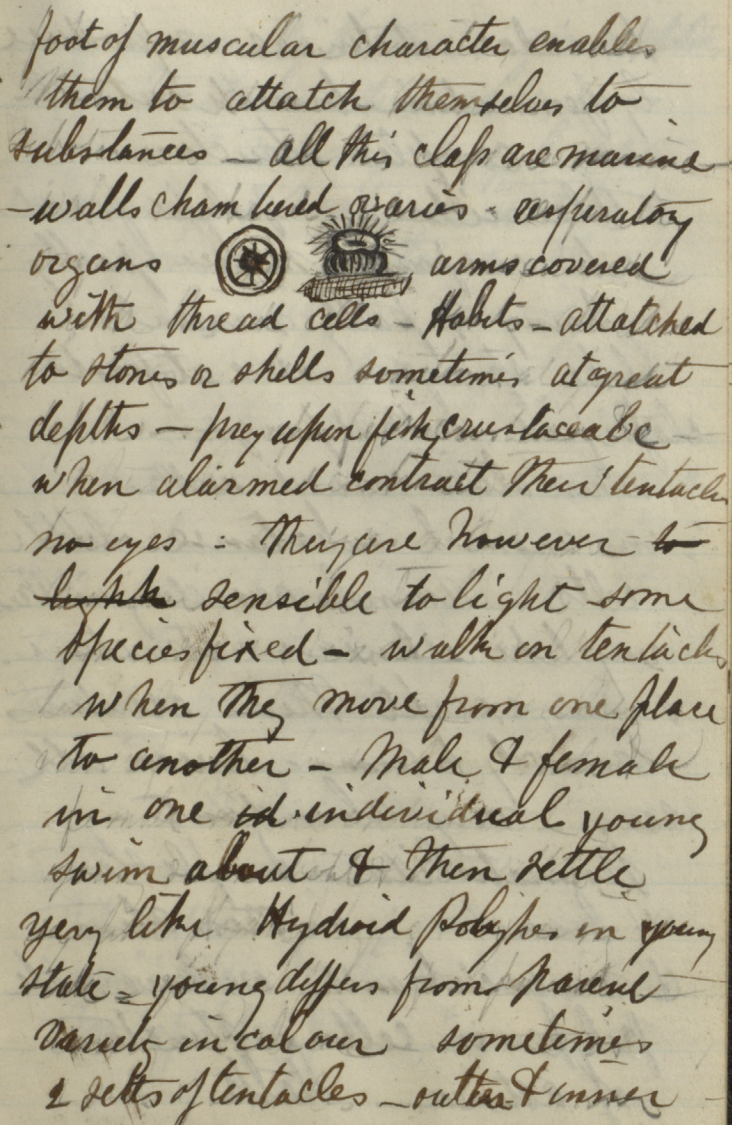 foot of muscular character enables
them to attatch themselves to
substances – all this class are marine
– walls chambered ovaries - respiratory
organs arms covered
with thread cells – Habits – attatched
to stones or shells sometimes at great
depths – prey upon fish, crustacea &c
when alarmed contract their tentacles
no eyes : they are however to
light sensible to light some
species fixed – walk on tentacles
when they move from one place
to another – Male & female
in one id individual young
swim about & then settle
very like Hydroid Polypes in young
state = young differs from Parent
Variety in colour sometimes
2 setts of tentacles – outer & inner